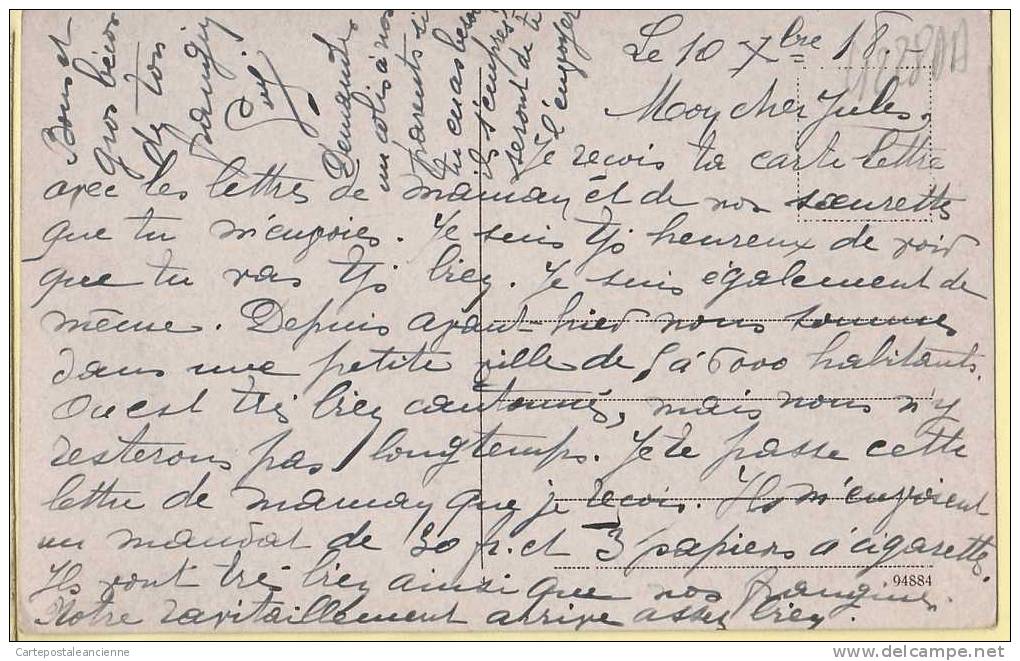 Le 10 Xbre 18
Mon cher Jules,
Je reçois ta carte lettre
avec les lettres de maman et de nos sœurettes
que tu m'envoies. Je suis tjs heureux de voir
que tu vas tjs bien. Je suis également de
même. Depuis avant-hier nous sommes
dans une petite ville de 5 à 6000 habitants.
On est très bien cantonnés, mais nous n'y
resterons pas longtemps. Je te passe cette
lettre de maman que je reçois. Ils m'envoient
un mandat de 30 f. et 3 papiers à cigarette.
Ils vont très bien ainsi que nos frangines.
Notre ravitaillement arrive assez bien.
Demande
un colis à nos
parents si
tu en as besoin
ils s'empres
seront de te
l'envoyer
Bons et
gros bécos
de ton
frangin
94884
Cartepostaleancienne
www.delcampe.net